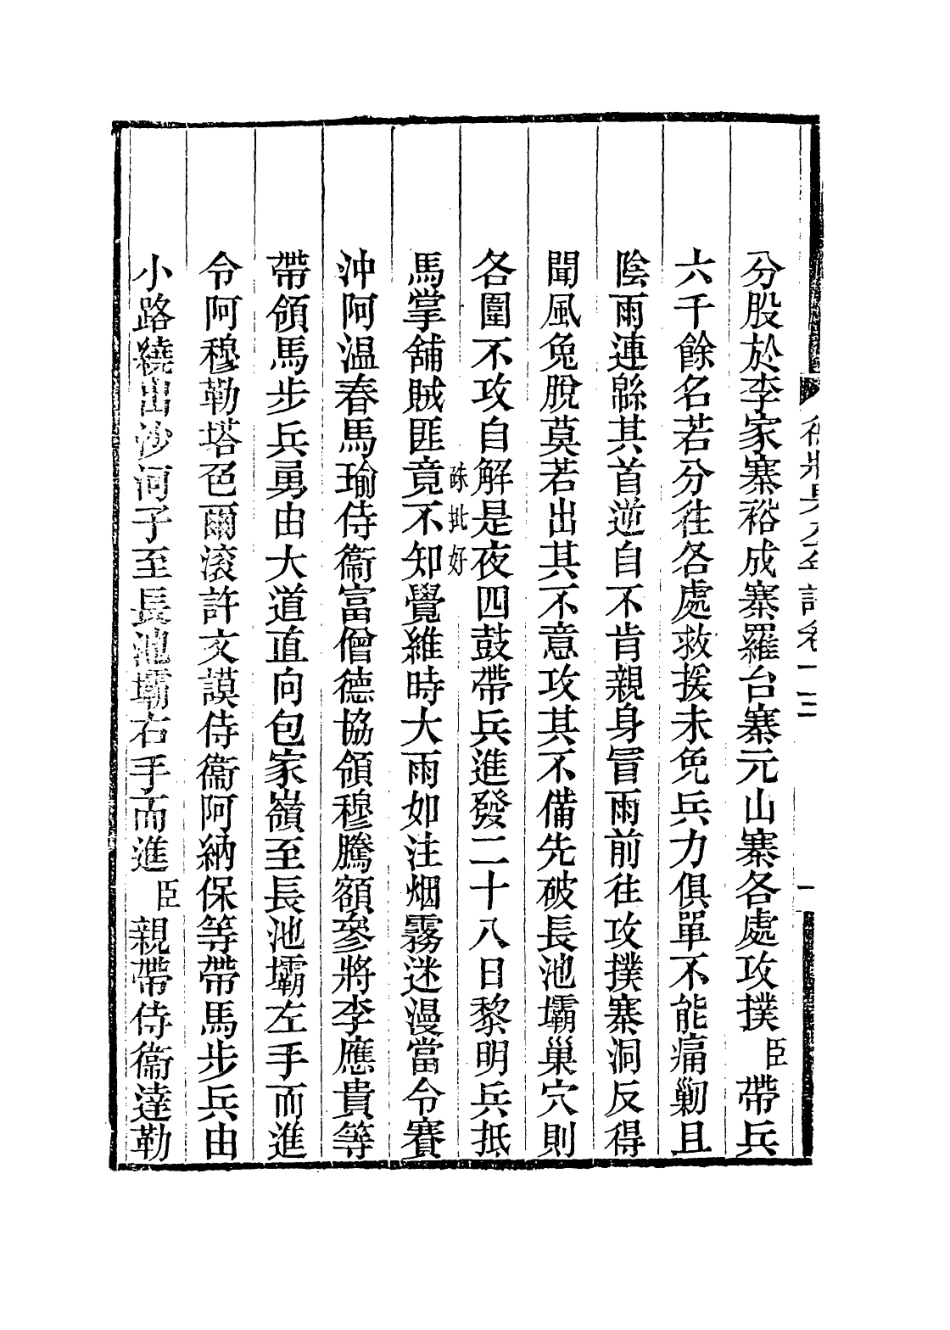 分股於李家寨裕成寨羅台寨元山寨各處攻撲臣帶兵
六千餘名若分往各處救援未免兵力俱單不能痛剿且
陰雨連緜其首逆自不肯親身冒雨前往攻撲寨洞反得
聞風兔脫莫若出其不意攻其不備先破長池壩巢穴則
各圍不攻自解是夜四鼓帶兵進發二十八日黎明兵抵
硃批好
馬掌舖賊匪竟不知覺維時大雨如注烟霧迷漫當令賽
沖阿溫春馬瑜侍衞富僧德協領穆騰額參將李應貴等
帶領馬步兵勇由大道直向包家嶺至長池壩左手而進
令阿穆勒塔色爾滚許文謨侍衞阿納保等帶馬步兵由
小路繞出沙河子至長池壩右手而進臣親帶侍衞達勒